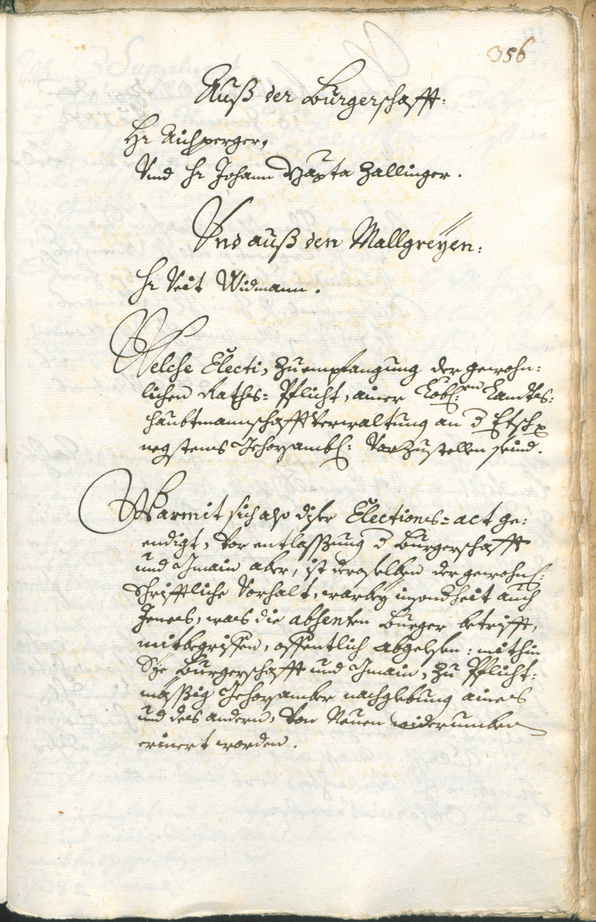 356
Auß der Burgerschafft:
Hr Aichperger,
Vnd Hr Johann Bapta Zallinger.
Vnd auß den Mallgreyen:
Hr Veit Widmann.
Welche Electi, zu empfangung der gewohn:
lichen Raths=Pflicht, ainer Löbl: Landts:
haubtmannschafft Verwaltung an d Etsch
negstens gehorsambl: vorzustellen seind.
Warmit sich also diser Elections=act ge:
endigt, vor entlassung d Burgerschafft
und Gmain aber, ist derselben der gewohnl:
schrifftliche Vorhalt, warbey insondheit auch
Jenes, was die absenten Burger betrifft,
mitbegriffen, offentlich abgelesen: mithin
Sye Burgerschafft und Gmain, zu Pflicht:
mässig gehorsamber nachlebung aines
und des andern, von Neuen widerumben
erinert worden.